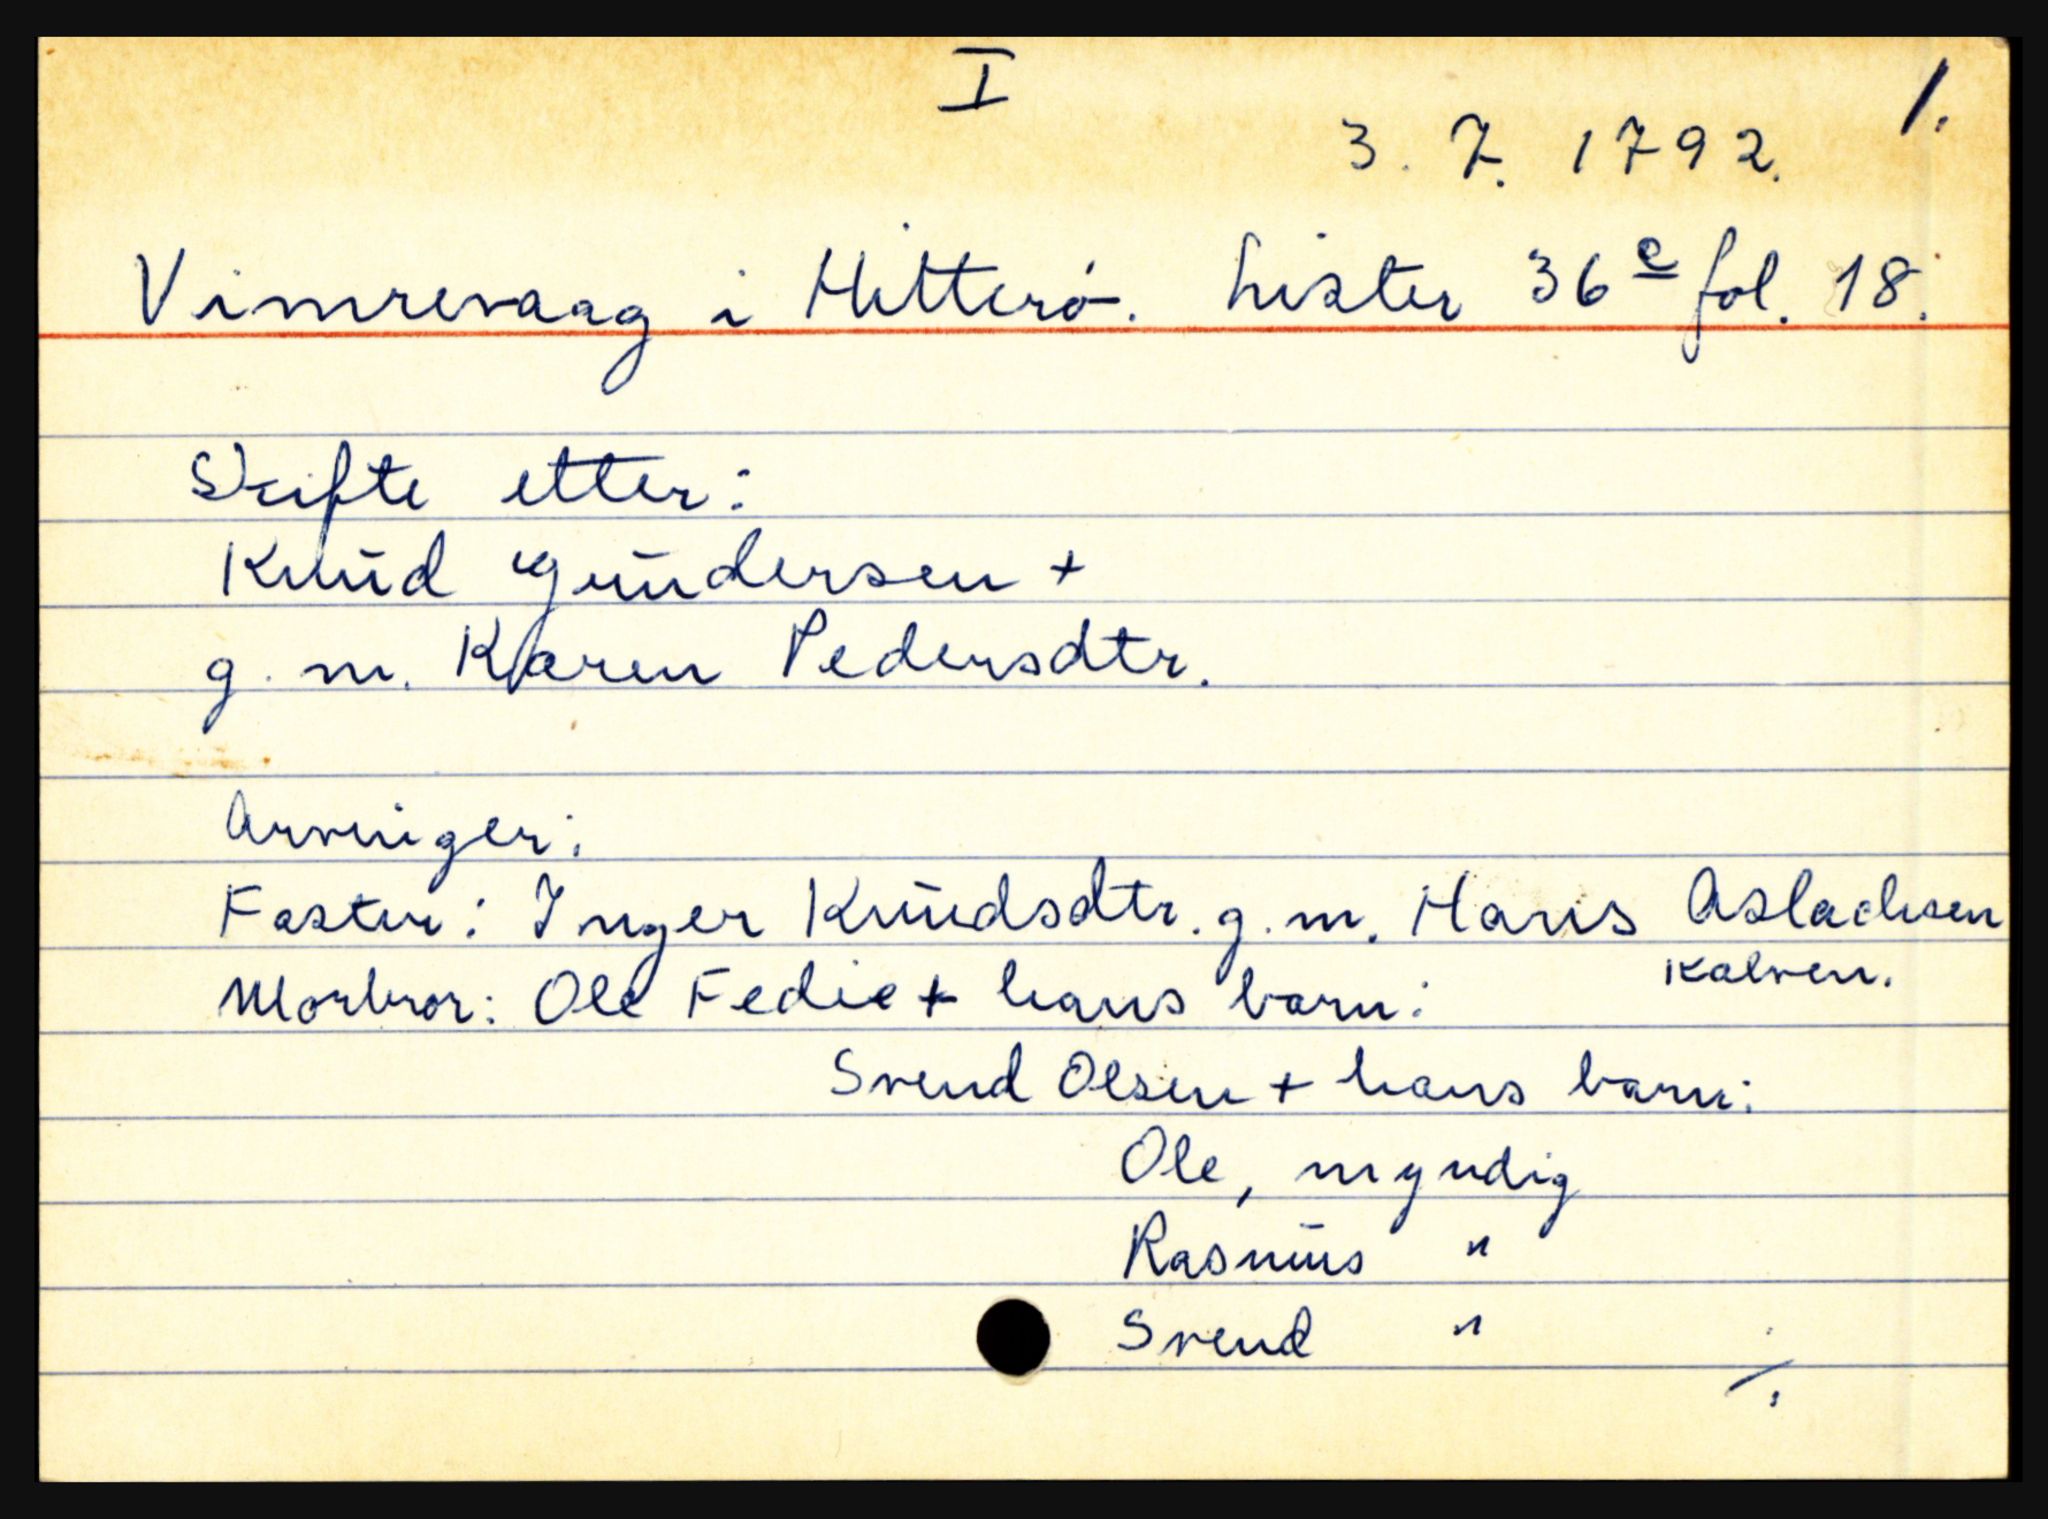 I
1.
3. 7. 1792.
Vimrevaag i Hitterø. Lister 36 c fol. 18.
Skifte etter:
Knud Gundersen +
g. m. Karen Pedersdtr.
Arvinger:
Faster: Inger Knudsdtr. g. m. Hans Aslachsen
Kalven.
Morbror: Ole Fedie + hans barn:
Svend Olsen + hans barn:
Ole, myndig
Rasmus "
Svend "
/.